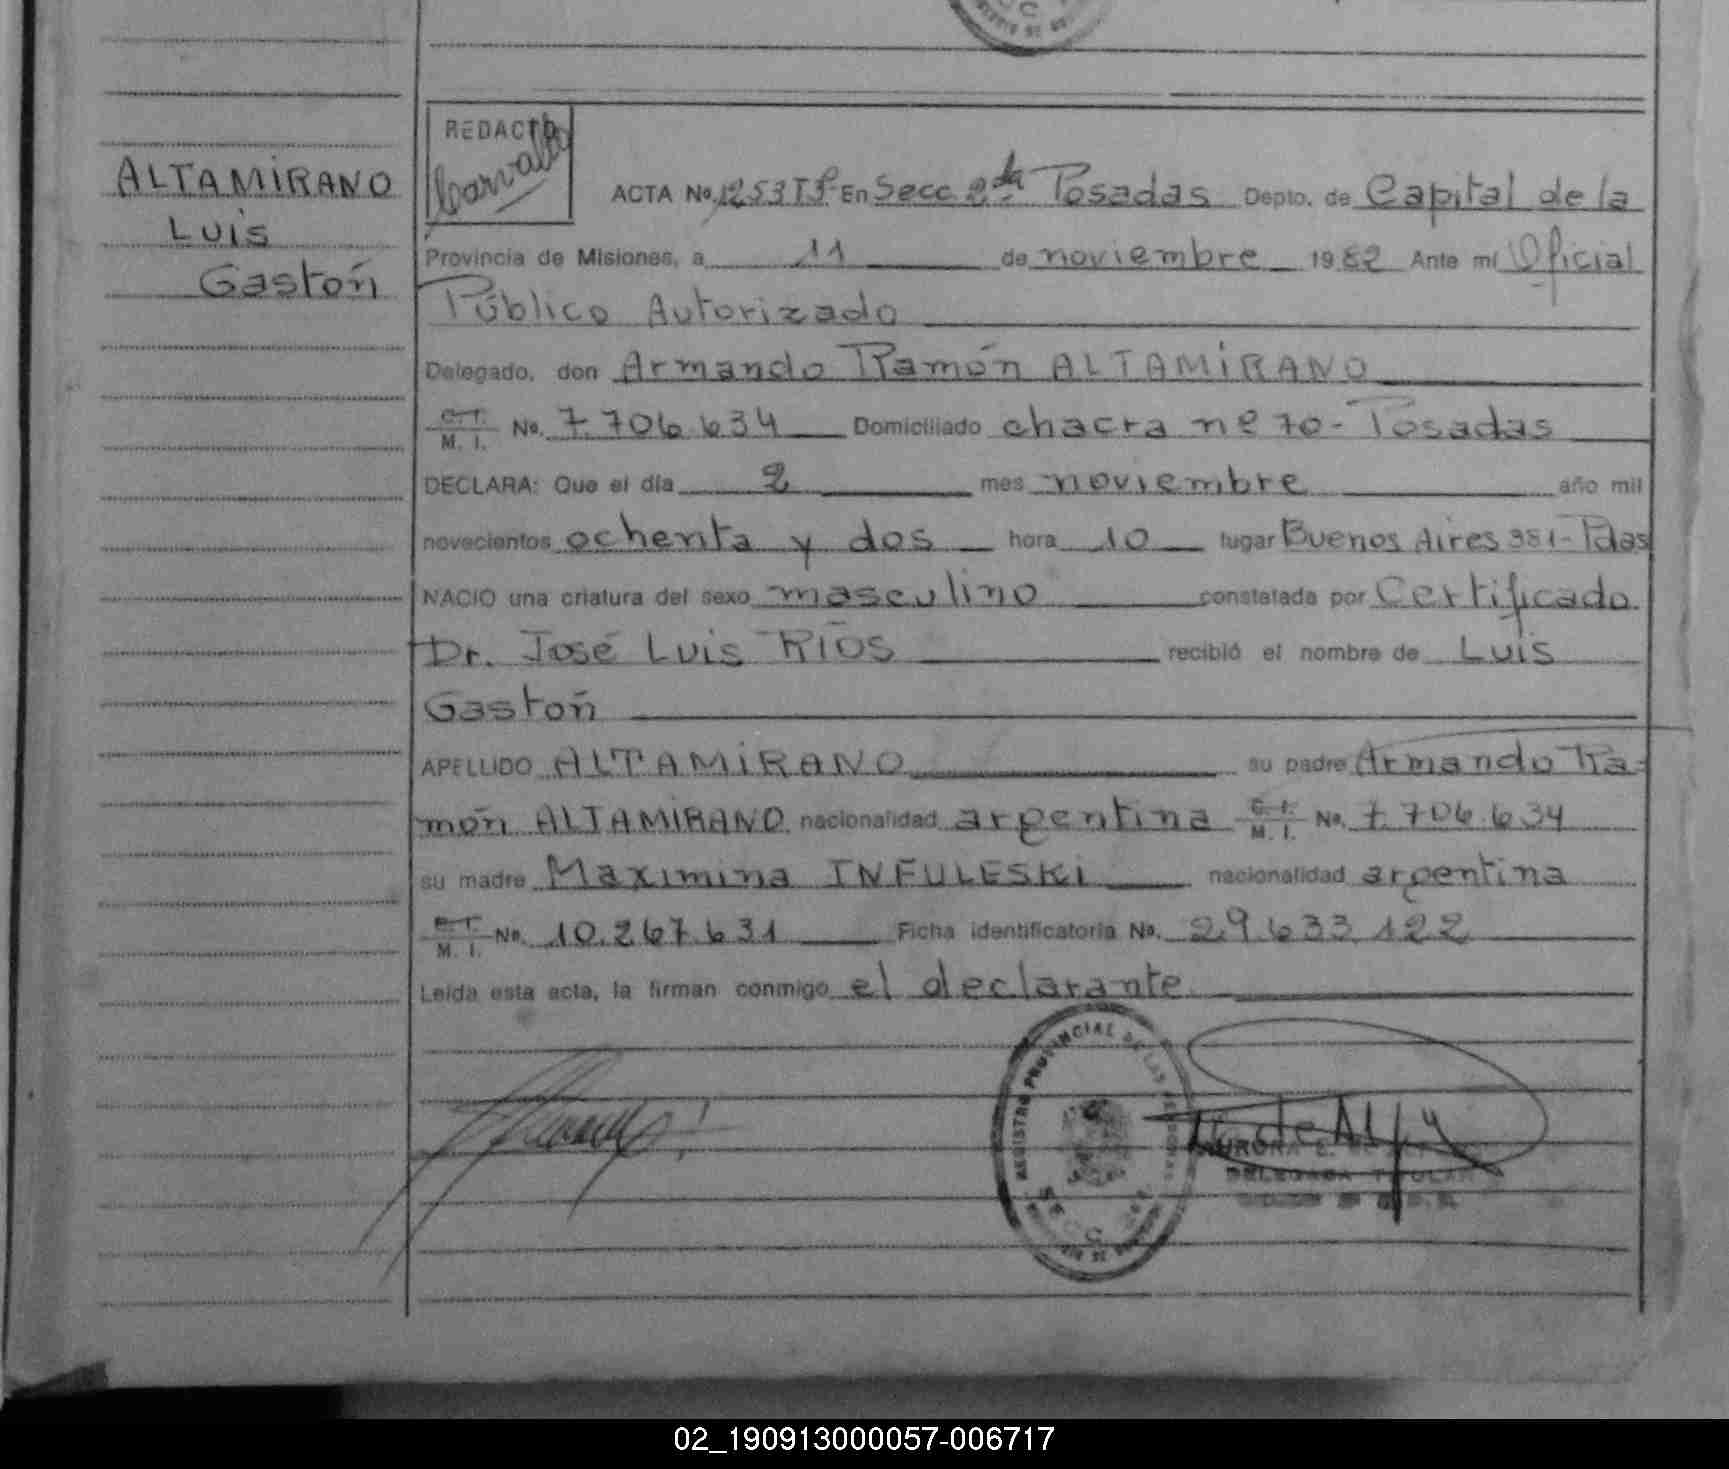 ALTAMIRANO
Luis
Gastón
REDACTO
Carvallo
ACTA No. 1253 TS En Secc 2da Posadas Depto. de Capital de la
Provincia de Misiones, a 11 de noviembre 1982 Ante mí Oficial
Público Autorizado
Delegado, don Armando Ramón ALTAMIRANO
C. I. M. I. No. 7.706.634 Domiciliado chacra nº 70 - Posadas
DECLARA: Que el día 2 mes noviembre año mil
novecientos ochenta y dos hora 10 lugar Buenos Aires 381-Pdas
NACIO una criatura del sexo masculino constatada por Certificado
Dr. José Luis RIOS recibió el nombre de Luis
Gastón
APELLIDO ALTAMIRANO su padre Armando Ra-
món ALTAMIRANO nacionalidad argentina C. I. M. I. No. 7.706.634
su madre Maximina INFULESKI nacionalidad argentina
C. I. M. I. No. 10.267.631 Ficha identificatoria No. 29.633.122
Leída esta acta, la firman conmigo el declarante
REGISTRO PROVINCIAL DE LAS PERSONAS
DELEGADA TITULAR
02_190913000057-006717